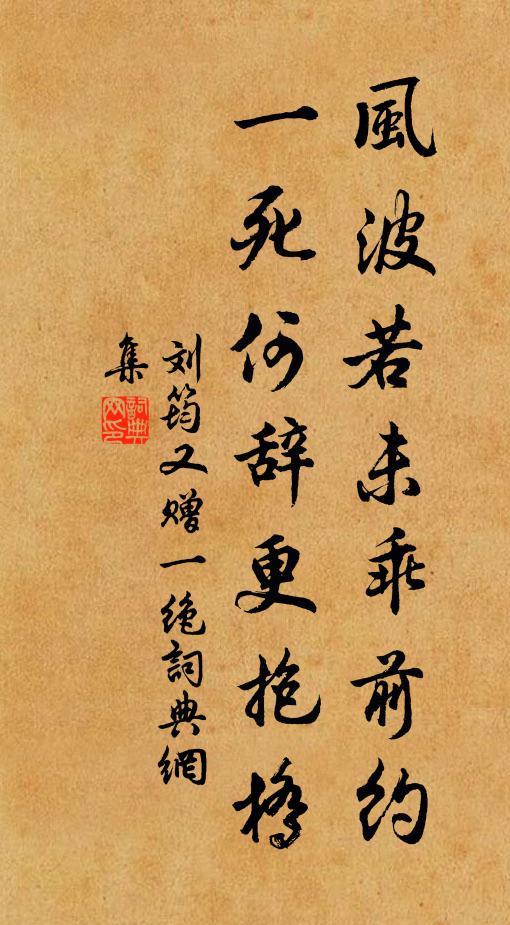 風波若未乖前約
一死何辞更抱橋
刘筠又赠一绝詞典網
集
詞典
网印